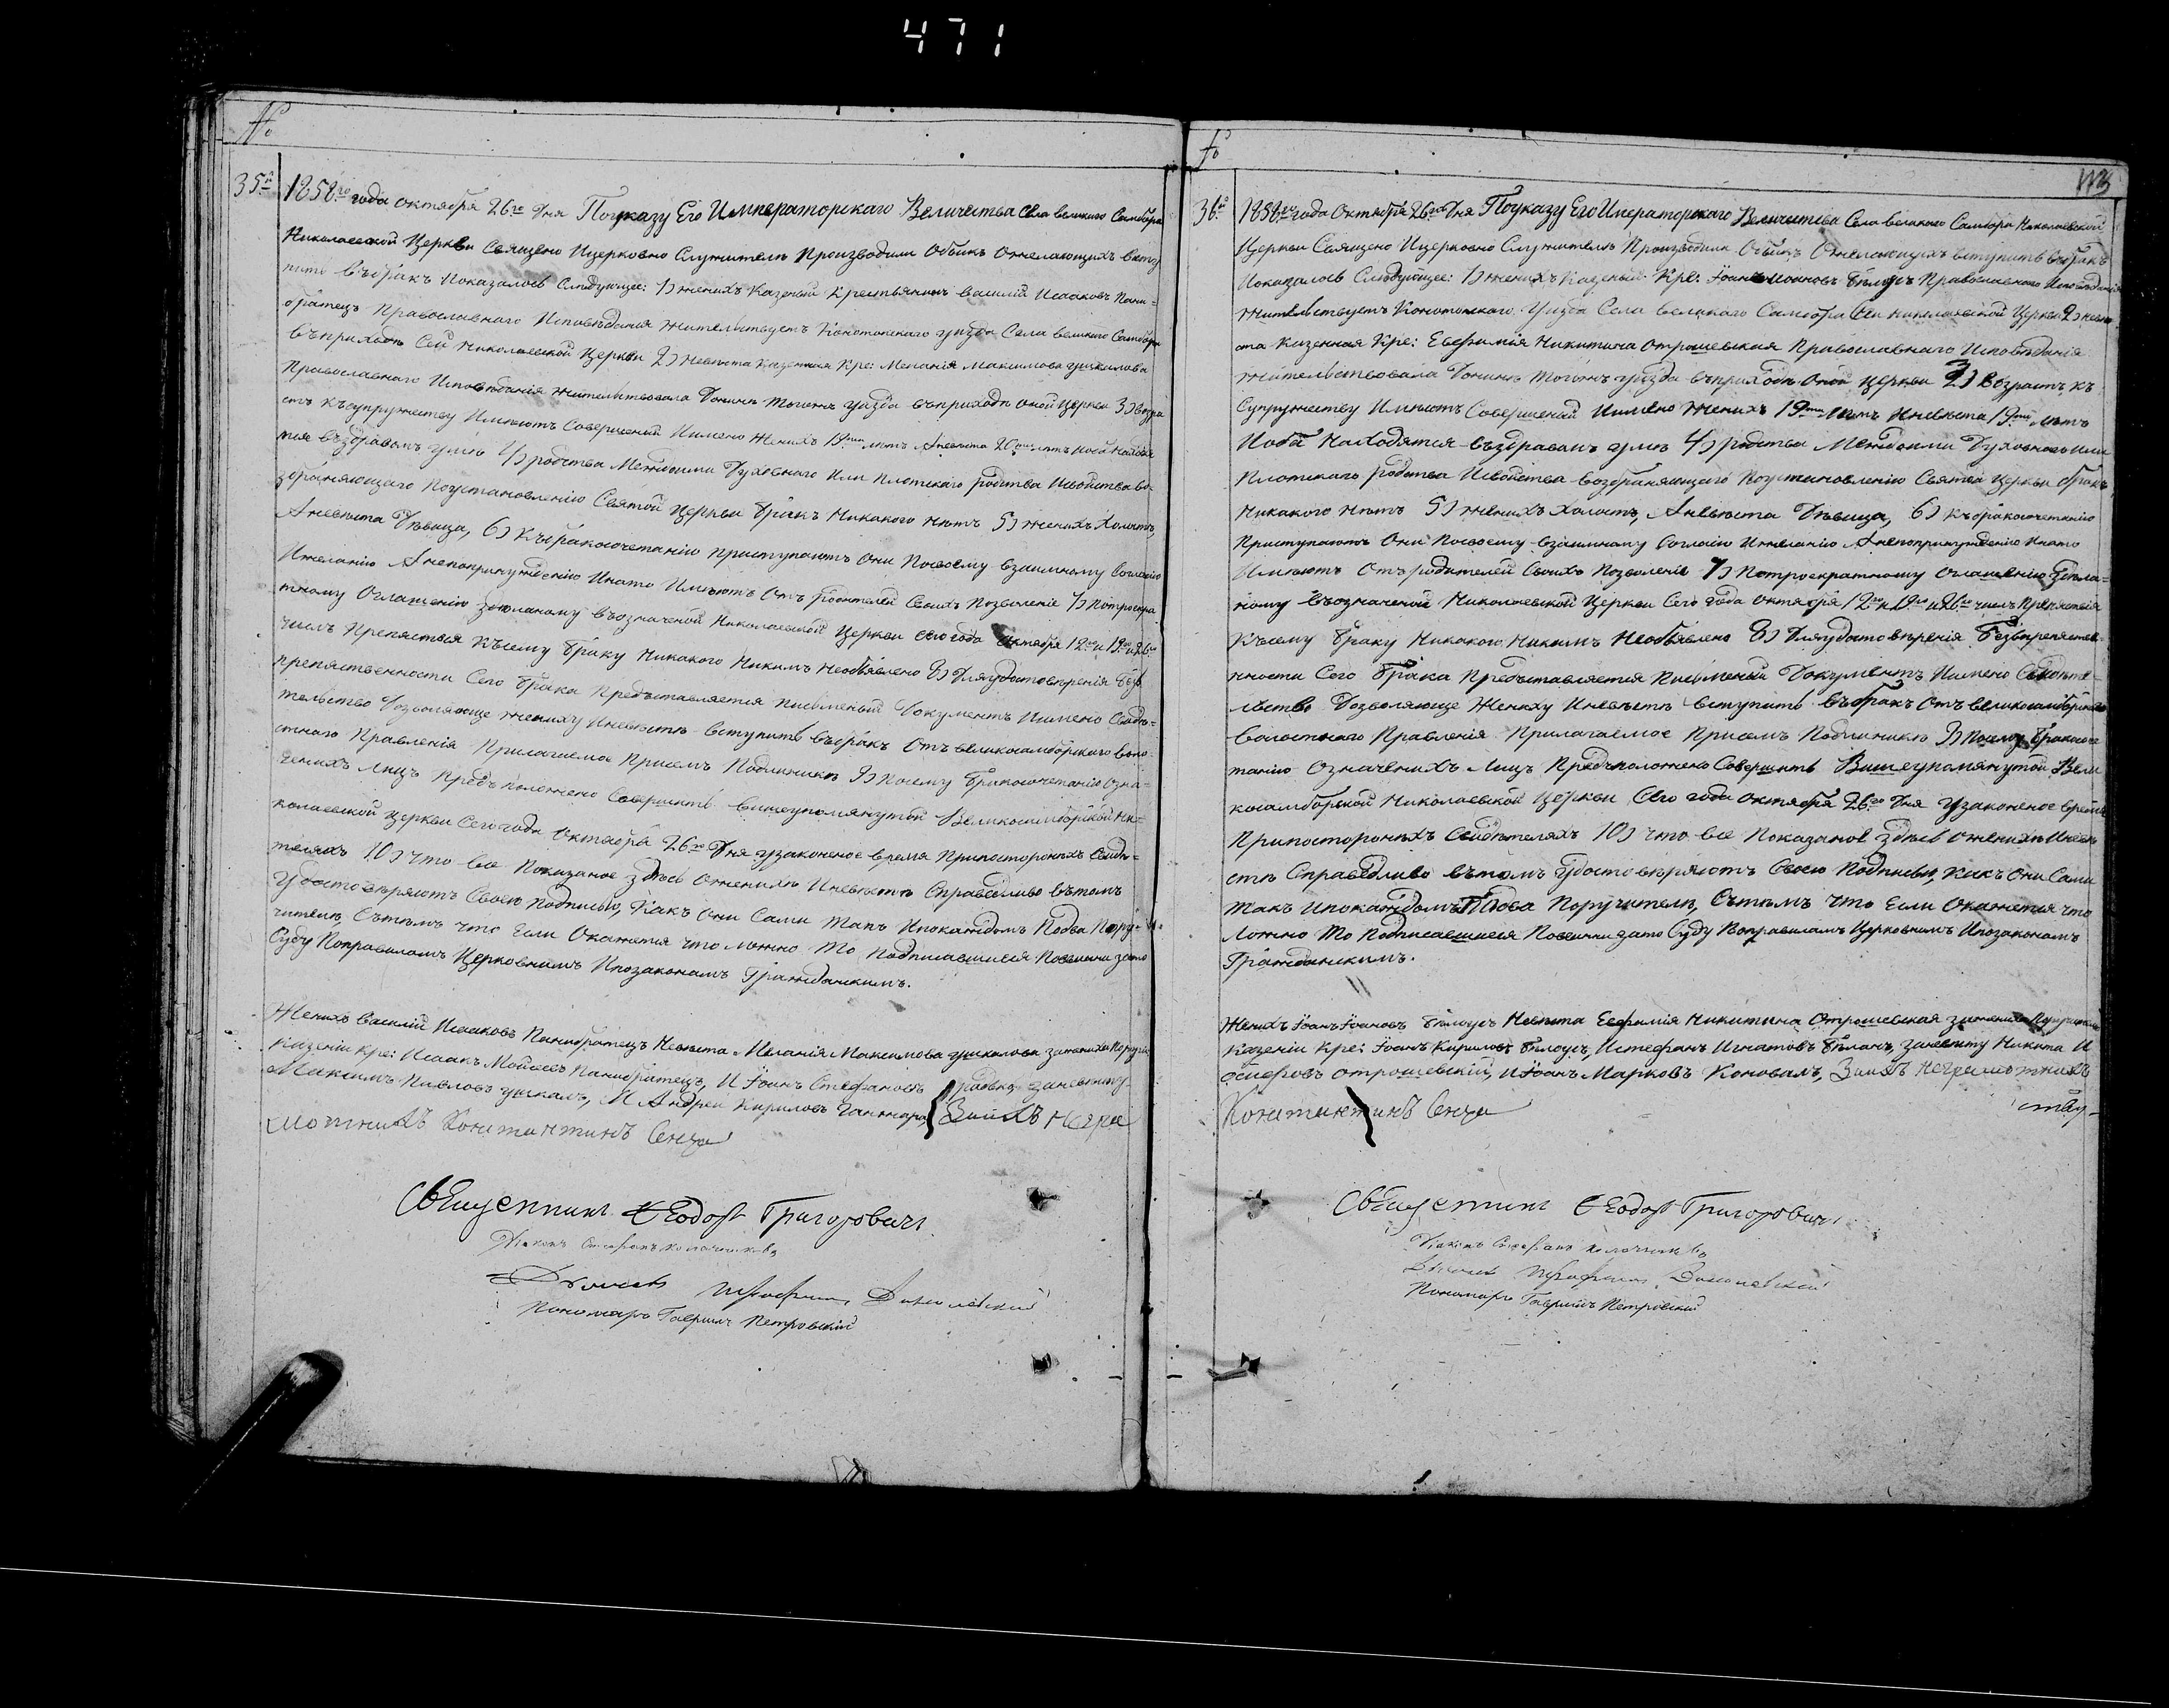 471
№
35й
1858го года октября 26го дня Поуказу Его Императорскаго Величества села великого Самбора
Николаевской Церкви Священо Ицерковно Служители Производили Обыкъ Ожелающихъ всту
пить въбракъ Показалось Слѣдующее: 1) женихъ Казеный Крестьянинъ Василій Исааковъ Пани=
братецъ Православнаго Исповѣданія жительствуетъ Конотопскаго уизда Села великого Самбора
въприходѣ Сей Николаевской Церкви 2) невѣста Казенная Кре: Меланія Максимова
Православнаго Исповѣданія жительствовала Донинѣ тогожъ уизда въприходѣ оной Церкви 3) возра
стъ Късупружеству Имѣютъ Совершеный Имено Женихъ 19ти лѣтъ Аневѣста 20ти лѣтъ Иоба Находя
тся въздравомъ умѣ 4) родства Междоими Духовнаго Или Плотскаго родства Исвойства во
збраняющаго Поустановленію Святой Церкви бракъ Никакого нѣтъ 5) женихъ Холостъ,
Аневѣста Дѣвица, 6) Къбракосочетанію приступаютъ Они Посвоему взаимному Согласію
Ижеланію Анепопринужденію Инато Имѣютъ Отъ родителей Своихъ Позволеніе 7) Потроекра
тному Оглашенію здѣланому въозначеной Николаевской Церкви сего года октября 12го и 19го и 26го
числъ Препяствія Късему браку Никакого Никимъ Необявлено 8) Дляудостовѣренія безъ
препяственности Сего брака Предъставляется писмений Документъ Имено Свидѣ=
тельство Дозволяюще жениху Иневѣстѣ вступить въбракъ Отъ великосамборскаго воло
стнаго Правленія Прилагаемое Присемъ Подлиникѣ 9) Посему бракосочетаніе Озна=
ченихъ лицъ Предъположено Совершить вишеупомянутой Великосамборской Ни=
колаевской церкви Сего года Октября 26го Дня узаконеное время Припосторонихъ Свидѣ=
теляхъ 10) что все Показаное здѣсь Оженихѣ Иневѣстѣ Справедливо вътомъ
Удостовѣряютъ Своею Подписью, Какъ Они Сами такъ Ипокаждомъ Подва Пору=
чители, Сътѣмъ что Если Окажется что ложно то Подписавшиеся Повинни зато
Суду Поправиламъ Церковнимъ Ипозаконамъ Гражданскимъ.
Женихъ Василій Исааковъ Панибратецъ Невѣста Меланія Максимова зажениха Поручи
Казеніи Кре: Исаакъ Мойсеевъ Панибратецъ, И Іоанъ Стефановъ заневѣсту
Максимъ Павловъ И Андрей Кириловъ Ганжара, Заихъ негра
мотнихъ Константинъ Сенча
Священникъ Ѳеодоръ Григоровичъ
Діаконъ Стефанъ
Дьячекъ
Пономарь Гавріилъ Петровскій
№
113
36й
1858го года Октября 26го Дня Поуказу Его Имераторскаго Величества Села великого Самбора Николаевской
Церкви Священо Ицерковно Служители Производили Обыкъ Ожелающихъ вступить въбракъ
Показалось Слѣдующее: 1) женихъ Казеный Кре: Іоанъ Іоановъ Бѣлоусъ Православнаго Исповѣданія
жительствуетъ Конотопскаго Уизда Села великого Самбора Сей николаевской Церкви 2) невѣ
ста Казенная Кре: Евфимія Никитина Отрошевская Православнаго Исповѣданія
жительствовала Донинѣ Тогожъ уизда въприходѣ оной церкви 3) возрастъ къ
Супружеству Имѣютъ Совершеный Иимено Женихъ 19ти лѣтъ Иневѣста 19ти лѣтъ
Иоба Находятся въздравомъ умѣ 4) родства Междоими Духовнаго Или
Плотскаго родства Исвойства возбраняющаго Поустановленію Святой Церкви бракъ
Никакого нѣтъ 5) женихъ Холостъ, Аневѣста Дѣвица, 6) Къбракосочетанію
Приступаютъ Они Посвоему взаимному Согласію Ижеланію Анепопринужденію Инато
Имѣютъ Отъ родителей Своихъ Позволеніе 7) Потроекратному Оглашенію здѣла=
ному въозначеной Николаевской Церкви Сего года Октября 12го и 19го и 26го числъ Препяствія
Късему браку Никакого Никимъ Необявлено 8) Дляудостовѣренія безъпрепяствен=
нности Сего брака Предъставляется Писмений Документъ Иимено Свидѣте=
льство Дозволяюще Жениху Иневѣстѣ вступить въбракъ Отъ великосамборскаго
волостнаго Правленія Прилагаемое Присемъ Подлиникѣ 9) Посему бракосоче
танію Означенихъ Лицъ Предъположено Совершить Вишеупомянутой Вели
косамборской Николаевской Церкви Сего года октября 26го Дня узаконеное время
Припосторонихъ Свидѣтеляхъ 10) что все Показаное здѣсь Оженихѣ Иневѣ
стѣ Справедливо вътомъ удостовѣряютъ Своею Подписью, Какъ Они Сами
такъ Ипокаждомъ Подва Поручители, Сътѣмъ что Если Окажется что
ложно то Подписавшиеся Повинни зато Суду Поправиламъ Церковнимъ Ипозаконамъ
Гражданскимъ.
Женихъ Іоанъ Іоановъ Бѣлоусъ Невѣста Евфимія Никитина Отрошевская зажениха Поручители
Казеніи Кре: Іоанъ Кириловъ Бѣлоусъ, Истефанъ Игнатовъ Бѣланъ, заневѣсту Никита И
осифовъ Отрошевскій, И Іоанъ Марковъ Коновалъ, Заихъ Неграмотнихъ
Константинъ Сенча
Священникъ Ѳеодоръ Григоровичъ
Діаконъ Стефанъ
Дьячекъ
Пономарь Гавріилъ Петровскій